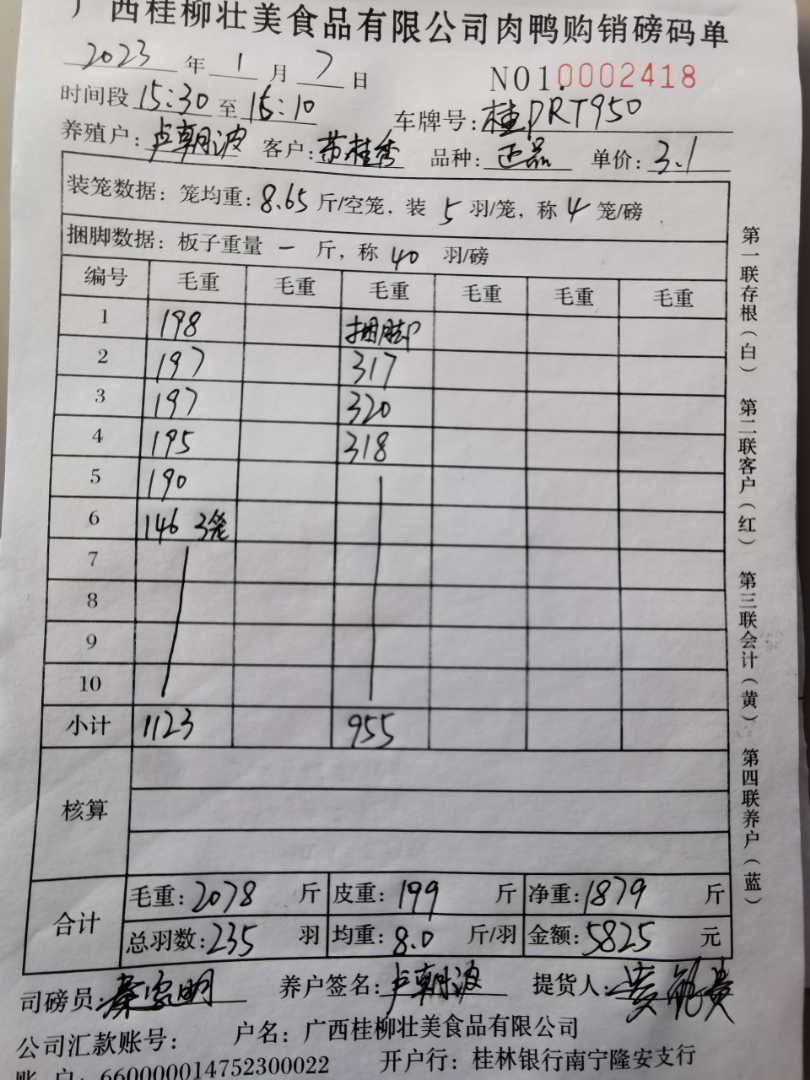 广西桂柳壮美食品有限公司肉鸭购销磅码单
2023 年 1 月 7 日 NO1.0002418
时间段 15:30 至 16:10 车牌号: 桂PRT950
养殖户: 卢朝波 客户: 苏桂秀 品种: 正品 单价: 3.1
装笼数据: 笼均重: 8.65 斤/空笼, 装 5 羽/笼, 称 4 笼/磅
捆脚数据: 板子重量 一 斤, 称 40 羽/磅
编号 毛重 毛重 毛重 毛重 毛重 毛重
1 198 捆脚
2 197 317
3 197 320
4 195 318
5 190
6 146 3笼
7
8
9
10
小计 1123 955
核算
合计 毛重: 2078 斤 皮重: 199 斤 净重: 1879 斤
总羽数: 235 羽 均重: 8.0 斤/羽 金额: 5825 元
司磅员 秦家明 养户签名: 卢朝波 提货人:
公司汇款账号: 户名: 广西桂柳壮美食品有限公司
账 户: 660000014752300022 开户行: 桂林银行南宁隆安支行
第一联存根(白) 第二联客户(红) 第三联会计(黄) 第四联养户(蓝)